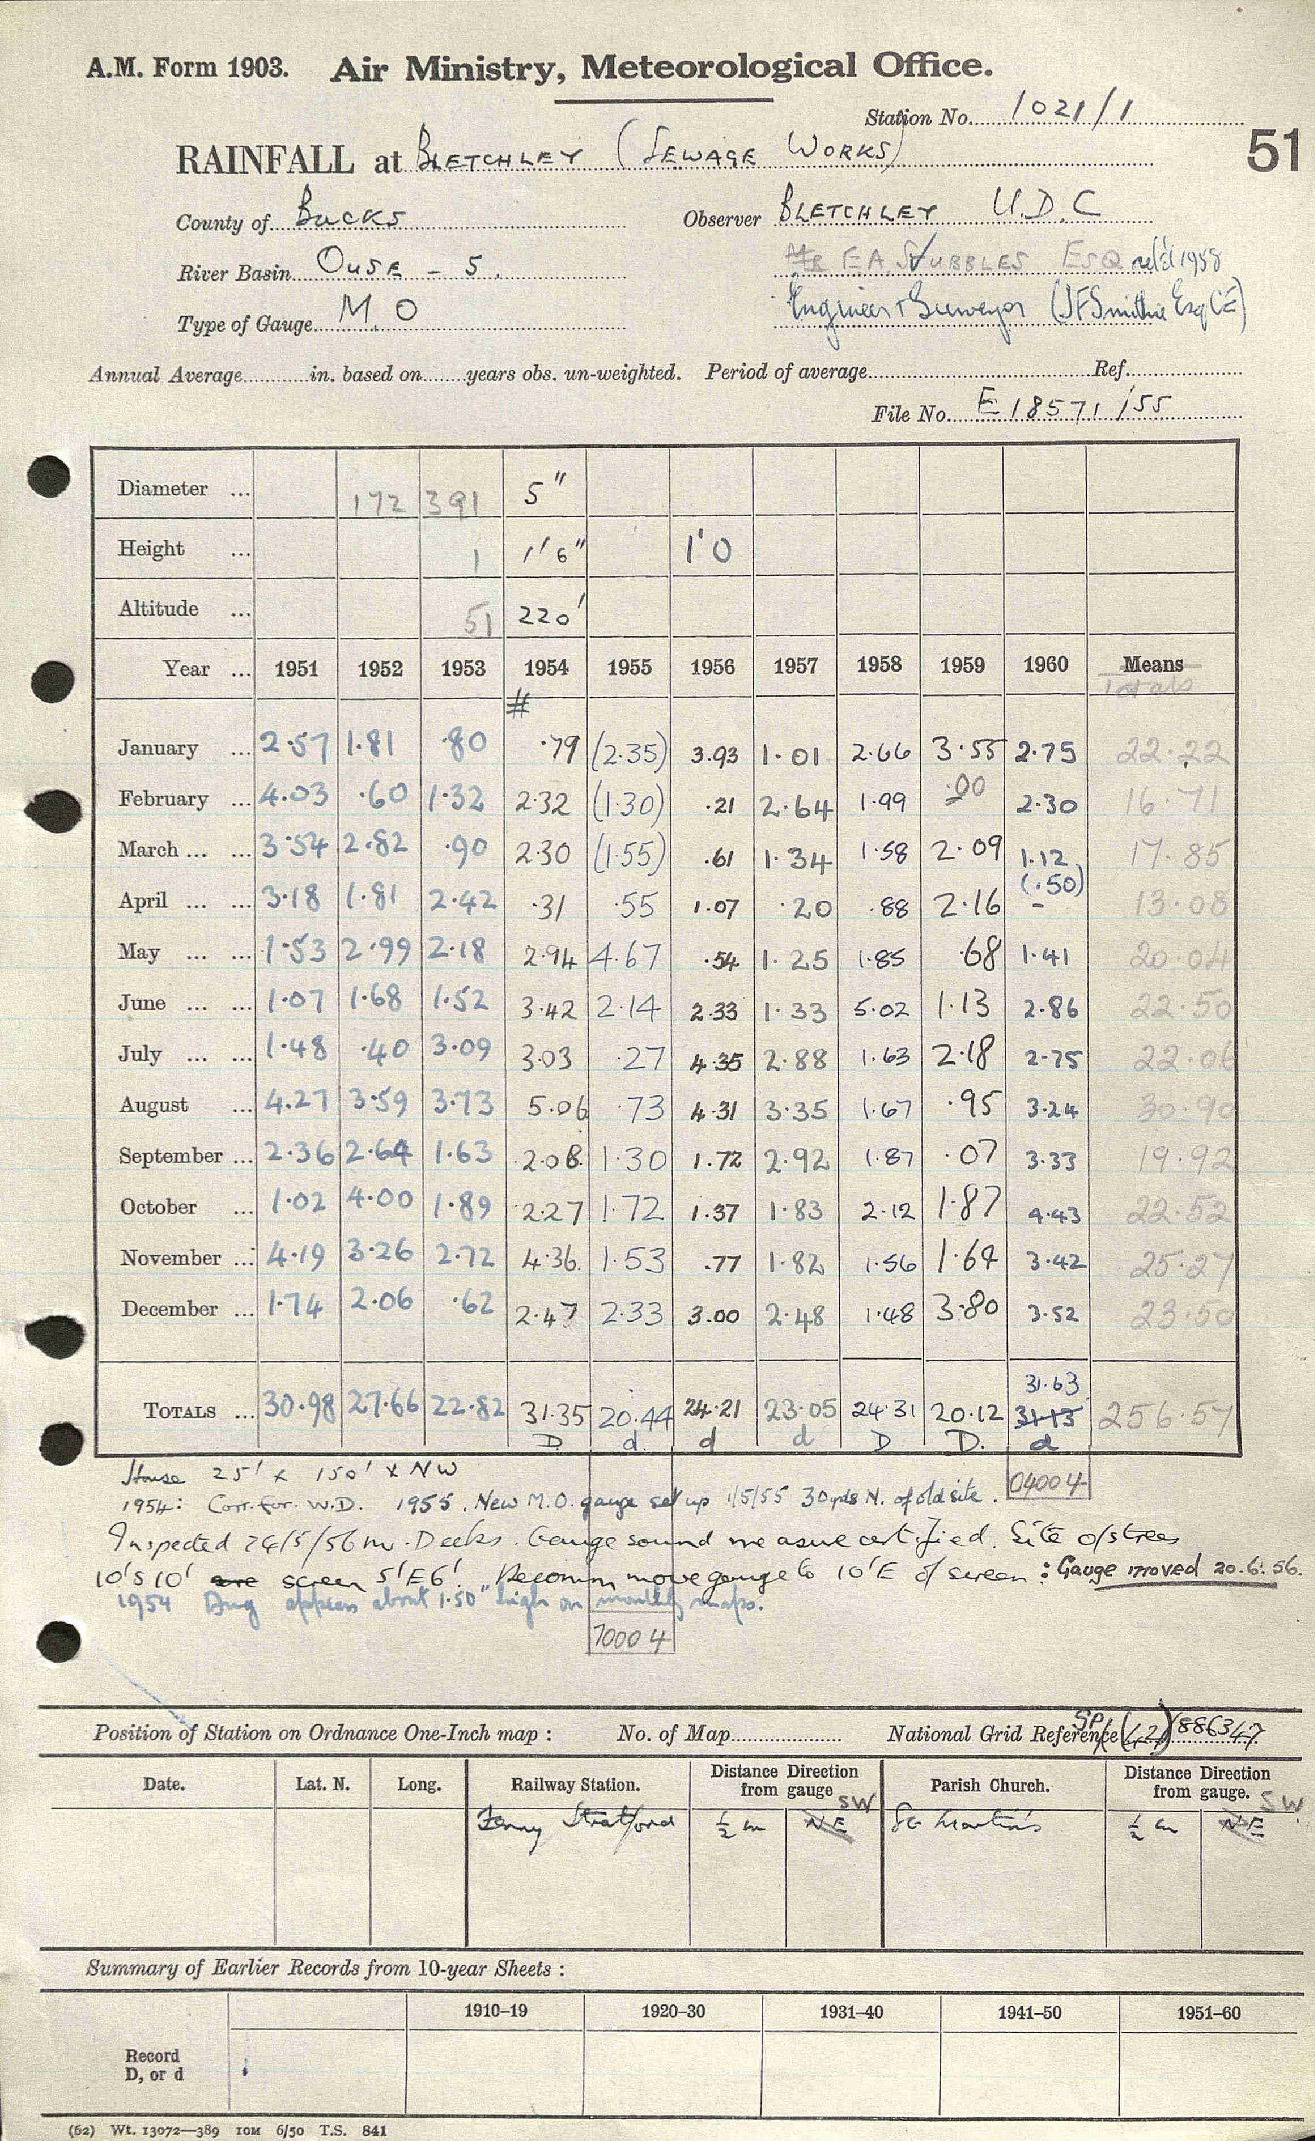 A.M. Form 1903. Air Ministry, Meteorological Office.
Station No. 1021/1
RAINFALL at BLETCHLEY (SEWAGE WORKS)
51
County of Bucks Observer BLETCHLEY U.D.C
River Basin OUSE - 5. MR E A STUBBLES ESQ ret'd 1958
Type of Gauge M.O Engineer & Surveyor (J F Smithie Esq CE)
Annual Average in. based on years obs. un-weighted. Period of average Ref.
File No. E 18571/55
Diameter ... 172 391 5"
Height ... 1 1'6" 1'0
Altitude ... 51 220'
Year ... 1951 1952 1953 1954 1955 1956 1957 1958 1959 1960 Means
# Totals
January ... 2.57 1.81 .80 .79 (2.35) 3.93 1.01 2.66 3.55 2.75 22.22
February ... 4.03 .60 1.32 2.32 (1.30) .21 2.64 1.99 .00 2.30 16.71
March ... ... 3.54 2.82 .90 2.30 (1.55) .61 1.34 1.58 2.09 1.12 17.85
April ... ... 3.18 1.81 2.42 .31 .55 1.07 .20 .88 2.16 (.50) - 13.08
May ... ... 1.53 2.99 2.18 2.94 4.67 .54 1.25 1.85 .68 1.41 20.04
June ... ... 1.07 1.68 1.52 3.42 2.14 2.33 1.33 5.02 1.13 2.86 22.50
July ... ... 1.48 .40 3.09 3.03 .27 4.35 2.88 1.63 2.18 2.75 22.06
August ... 4.27 3.59 3.73 5.06 .73 4.31 3.35 1.67 .95 3.24 30.90
September ... 2.36 2.64 1.63 2.08 1.30 1.72 2.92 1.87 .07 3.33 19.92
October ... 1.02 4.00 1.89 2.27 1.72 1.37 1.83 2.12 1.87 4.43 22.52
November ... 4.19 3.26 2.72 4.36 1.53 .77 1.82 1.56 1.64 3.42 25.27
December ... 1.74 2.06 .62 2.47 2.33 3.00 2.48 1.48 3.80 3.52 23.50
31.63
TOTALS ... 30.98 27.66 22.82 31.35 20.44 24.21 23.05 24.31 20.12 31.13 256.57
D d d d D D. d
House 25' x 150' x NW
0400 4
1954: Corr. for W.D. 1955. New M.O. gauge set up 1/5/55 30 yds N. of old site.
Inspected 24/5/56 Mr. Deeks. Gauge sound measure certified. Site o/s trees
10'S 10' are screen 5'E6'. Recomm move gauge to 10'E of screen : Gauge moved 20.6.56.
1954 Aug appears about 1.50" high on monthly maps.
7000 4
Position of Station on Ordnance One-Inch map : No. of Map National Grid Reference SP/(42) 886347
Date. Lat. N. Long. Railway Station. Distance Direction from gauge Parish Church. Distance Direction from gauge.
SW SW
Fenny Stratford ½ m NE St Martin's ½ m NE
Summary of Earlier Records from 10-year Sheets :
1910–19 1920–30 1931–40 1941–50 1951–60
Record
D, or d
(62) Wt. 13072—389 10M 6/50 T.S. 841